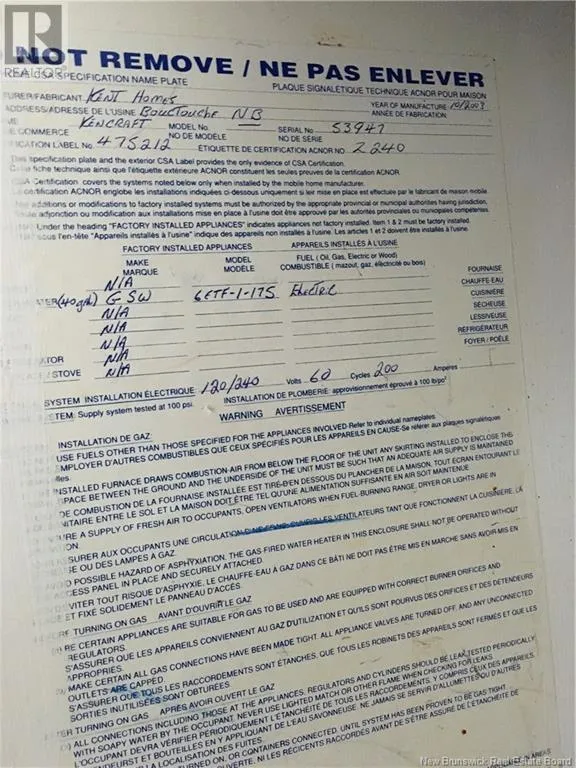 NOT REMOVE / NE PAS ENLEVER
REALTOR®
CSA SPECIFICATION NAME PLATE
PLAQUE SIGNALÉTIQUE TECHNIQUE ACNOR POUR MAISON
TURER/FABRICANT Kent Homes
YEAR OF MANUFACTURE 10/2003
ANNÉE DE FABRICATION
ADDRESS/ADRESSE DE L'USINE Bouctouche NB
COMMERCE Kencraft MODEL No
NO DE MODÈLE
SERIAL No 53947
NO DE SÉRIE
ICATION LABEL No 475212 ÉTIQUETTE DE CERTIFICATION ACNOR NO Z240
This specification plate and the exterior CSA Label provides the only evidence of CSA Certification.
fiche technique ainsi que l'étiquette extérieure ACNOR constituent les seules preuves de la certification ACNOR
CSA Certification covers the systems noted below only when installed by the mobile home manufacturer.
certification ACNOR englobe les installations indiquées ci-dessous uniquement si leur mise en place est effectuée par le fabricant de maison mobile
additions or modifications to factory installed systems must be authorized by the appropriate provincial or municipal authorities having jurisdiction.
adjonction ou modification aux installations mise en place à l'usine doit être approuvé par les autorités provinciales ou municipales compétentes.
Under the heading "FACTORY INSTALLED APPLIANCES" indicates appliances not factory installed. Item 1 & 2 must be factory installed.
sous l'en-tête "Appareils installés à l'usine" indique des appareils non installés à l'usine. Les articles 1 et 2 doivent être installés à l'usine.
FACTORY INSTALLED APPLIANCES APPAREILS INSTALLÉS À L'USINE
MAKE MODEL FUEL ( Oil, Gas, Electric or Wood)
MARQUE MODÈLE COMBUSTIBLE ( mazout, gaz, électricité ou bois)
N/A FOURNAISE
TER(40gal) GSW 6ETF-1-175 Electric CHAUFFE-EAU
N/A CUISINIÈRE
N/A SÉCHEUSE
N/A LESSIVEUSE
ATOR N/A RÉFRIGÉRATEUR
/ STOVE N/A FOYER / POÊLE
SYSTEM INSTALLATION ÉLECTRIQUE 120/240 Volts 60 Cycles 200 Amperes
TEM: Supply system tested at 100 psi. INSTALLATION DE PLOMBERIE: approvisionnement éprouvé à 100 lb/po²
WARNING AVERTISSEMENT
INSTALLATION DE GAZ
USE FUELS OTHER THAN THOSE SPECIFIED FOR THE APPLIANCES INVOLVED-Refer to individual nameplates.
EMPLOYER D'AUTRES COMBUSTIBLES QUE CEUX SPÉCIFIÉS POUR LES APPAREILS EN CAUSE-Se référer aux plaques signalétiques
INSTALLED FURNACE DRAWS COMBUSTION-AIR FROM BELOW THE FLOOR OF THE UNIT ANY SKIRTING INSTALLED TO ENCLOSE THE
SPACE BETWEEN THE GROUND AND THE UNDERSIDE OF THE UNIT MUST BE SUCH THAT AN ADEQUATE AIR SUPPLY IS MAINTAINED
DE COMBUSTION DE LA FOURNAISE INSTALLÉE EST TIRÉ-D'EN DESSOUS DU PLANCHER DE LA MAISON. TOUT ÉCRAN ENTOURANT LE
NITAIRE ENTRE LE SOL ET LA MAISON DOIT ÊTRE TEL QU'UNE ALIMENTATION SUFFISANTE EN AIR SOIT MAINTENUE
URE A SUPPLY OF FRESH AIR TO OCCUPANTS, OPEN VENTILATORS WHEN FUEL-BURNING RANGE, DRYER OR LIGHTS ARE IN
ASSURER AUX OCCUPANTS UNE CIRCULATION D'AIR FRAIS, OUVRIR LES VENTILATEURS TANT QUE FONCTIONNENT LA CUISINIÈRE, LA
SE OU DES LAMPES À GAZ.
POSSIBLE HAZARD OF ASPHYXIATION. THE GAS FIRED WATER HEATER IN THIS ENCLOSURE SHALL NOT BE OPERATED WITHOUT
ACCESS PANEL IN PLACE AND SECURELY ATTACHED.
ÉVITER TOUT RISQUE D'ASPHYXIE. LE CHAUFFE-EAU À GAZ DANS CE BÂTI NE DOIT PAS ÊTRE MIS EN MARCHE SANS AVOIR MIS EN
ET FIXÉ SOLIDEMENT LE PANNEAU D'ACCÈS.
TURNING ON GAS AVANT D'OUVRIR LE GAZ
BE CERTAIN APPLIANCES ARE SUITABLE FOR GAS TO BE USED AND ARE EQUIPPED WITH CORRECT BURNER ORIFICES AND
REGULATORS.
S'ASSURER QUE LES APPAREILS CONVIENNENT AU GAZ D'UTILIZATION ET QU'ILS SONT POURVUS DES ORIFICES ET DES DÉTENDEURS
APPROPRIES.
MAKE CERTAIN ALL GAS CONNECTIONS HAVE BEEN MADE TIGHT, ALL APPLIANCE VALVES ARE TURNED OFF, AND ANY UNCONNECTED
OUTLETS ARE CAPPED.
S'ASSURER QUE TOUS LES RACCORDEMENTS SONT ÉTANCHES, QUE TOUS LES ROBINETS DES APPAREILS SONT FERMÉS ET QUE LES
SORTIES INUTILISÉES SONT OBTURÉES.
TER TURNING ON GAS APRÈS AVOIR OUVERT LE GAZ
ALL CONNECTIONS INCLUDING THOSE AT THE APPLIANCES, REGULATORS AND CYLINDERS SHOULD BE LEAK TESTED PERIODICALLY
WITH SOAPY WATER BY THE OCCUPANT. NEVER USE LIGHTED MATCH OR OTHER FLAME WHEN CHECKING FOR LEAKS
L'OCCUPANT DEVRA VÉRIFIER PÉRIODIQUEMENT L'ÉTANCHÉITÉ DE TOUS LES RACCORDEMENTS, Y COMPRIS CEUX DES APPAREILS,
ET BOUTEILLES EN Y APPLIQUANT DE L'EAU SAVONNEUSE. NE JAMAIS SE SERVIR D'ALLUMETTES OU D'AUTRES
LA LOCALISATION DES FUITES.
TURNED ON, OR CONTAINERS CONNECTED, UNTIL SYSTEM HAS BEEN PROVEN TO BE GAS TIGHT.
OUVERTE, NI LES RÉCIPIENTS RACCORDÉS AVANT DE S'ÊTRE ASSURÉ DE L'ÉTANCHÉITÉ DE
New Brunswick Real Estate Board